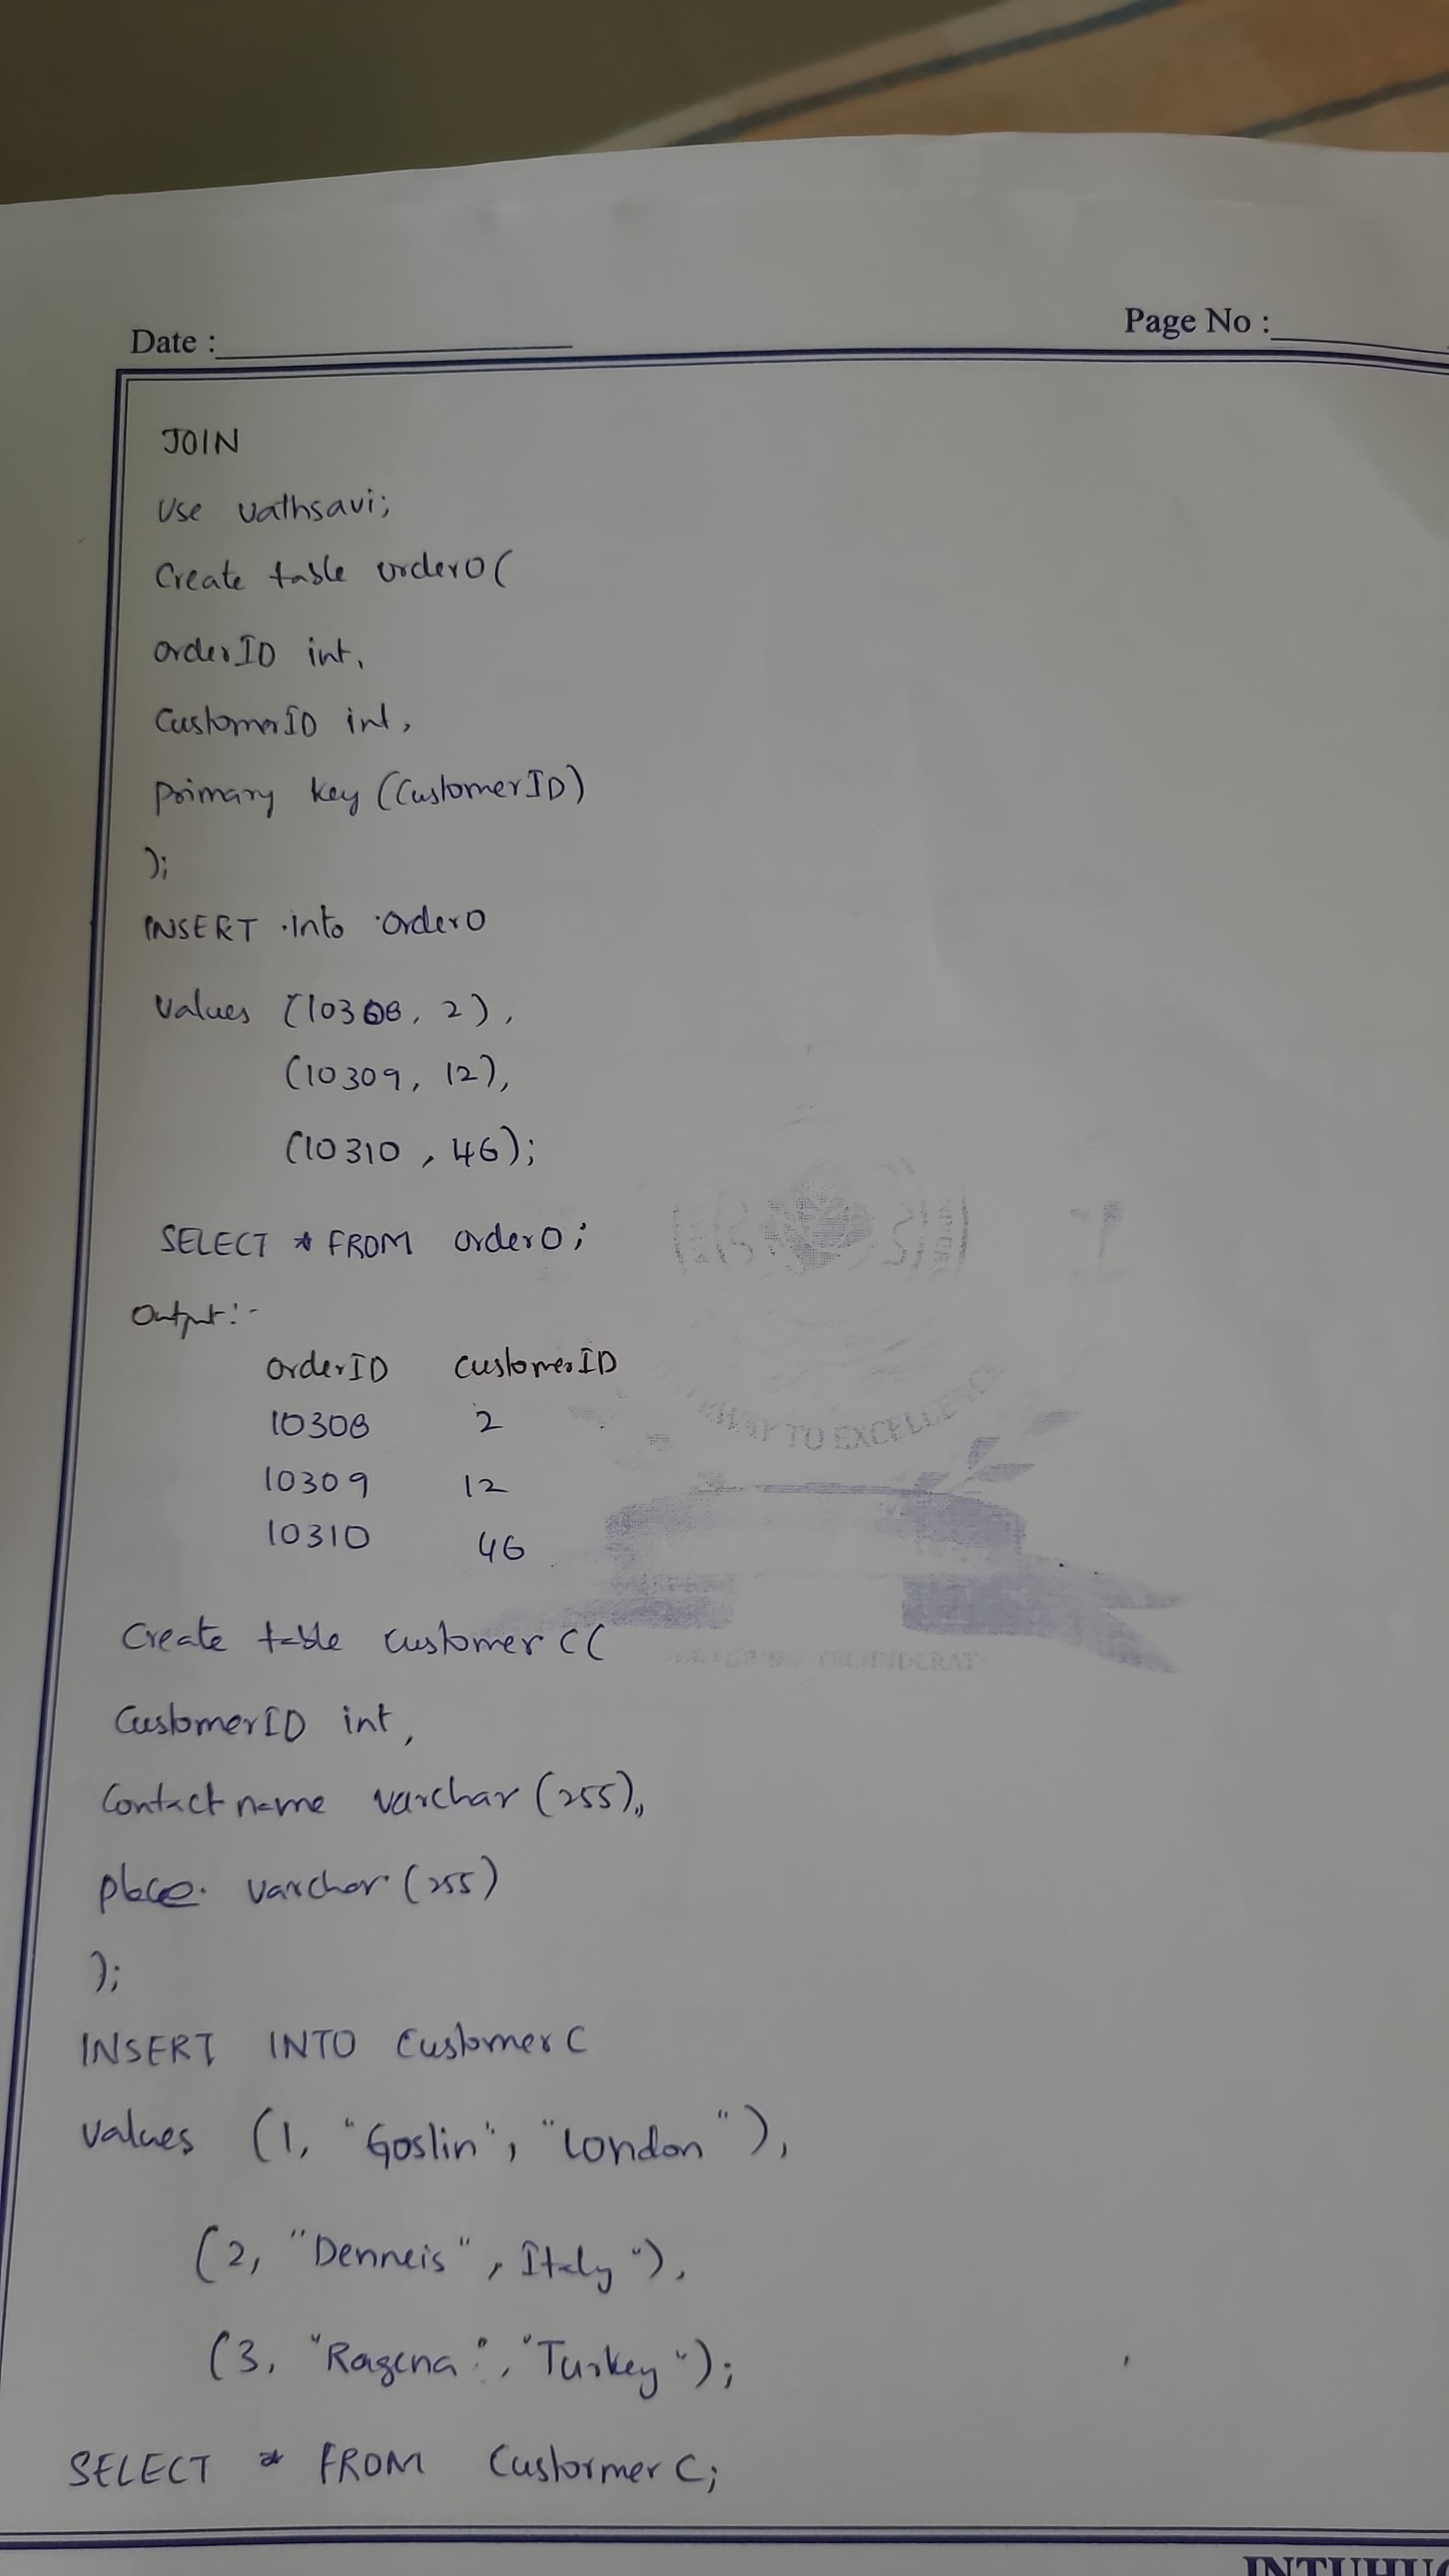 Date :
Page No :
JOIN
Use vathsavi;
Create table orderO(
OrderID int,
CustomerID int,
primary key (CustomerID)
);
INSERT into orderO
Values (10308, 2),
(10309, 12),
(10310, 46);
SELECT * FROM orderO;
Output:-
OrderID customerID
10308 2
10309 12
10310 46
Create table customerC(
CustomerID int,
Contactname varchar(255),
place varchar(255)
);
INSERT INTO CustomerC
values (1, "Goslin", "London"),
(2, "Denneis", Italy"),
(3, "Ragena", "Turkey");
SELECT * FROM CustormerC;
TO EXCELLENCE